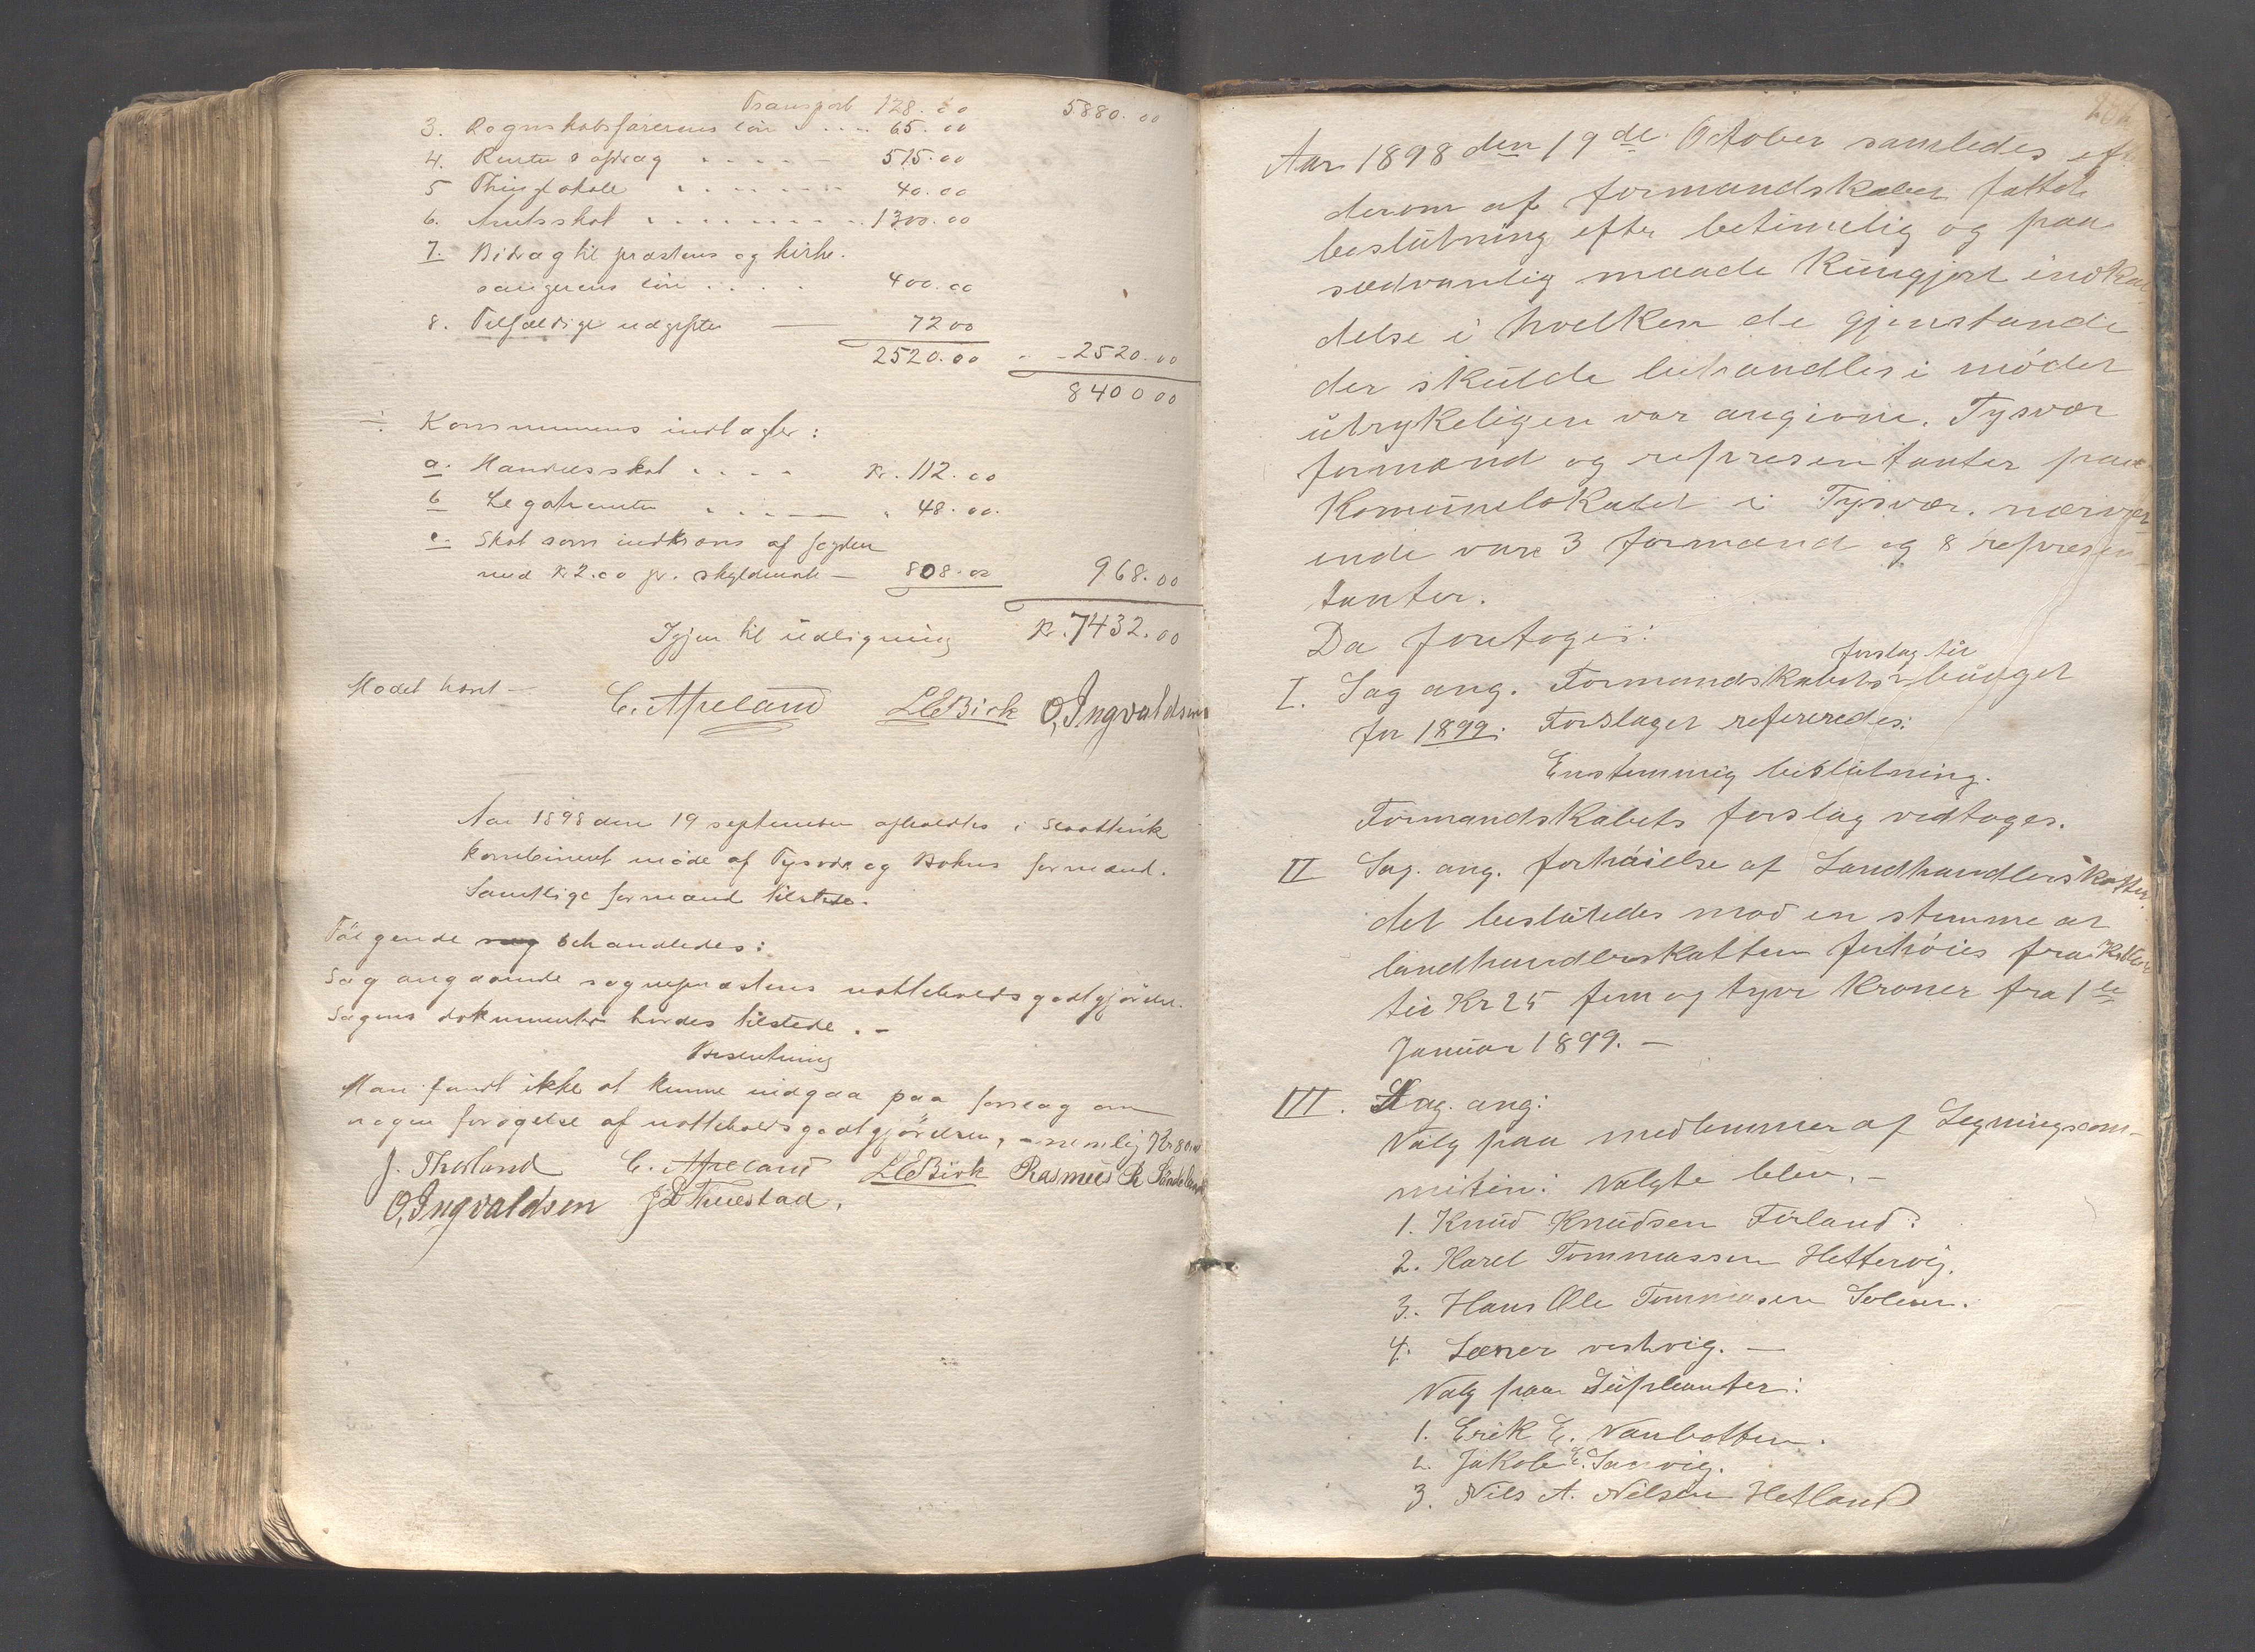 Transport 128.00 5880.00
3. Regnskabsførerens løn .... 65.00
4. Renter & afdrag . . . . - 515.00
5 Thinglokale . . . . . . 40.00
6. Amtsskat . . . . . . . . 1300.00
7. Bidrag til præstens og kirke-
sangerens løn . . . . 400.00
8. Tilfældige udgifter — 72 00
2520.00 - - 2520.00
8400 00
÷ Kommunens indtægter:
a. Handelsskat . . . . Kr. 112.00
b Legatrenter . . . — " 48.00.
c. Skat som indkræves af fogden
med Kr 2.00 pr. skyldmark — 808.00 968.00
Igjen til udligning Kr. 7432.00
Mødet hævet —
C. Apeland LEBirk O, Ingvaldsen
Aar 1898 den 19 september afholdtes i
kombineret møde af Tysvær og Bokns formænd.
Samtlige formænd tilstede.
Følgende sag behandledes:
Sag angaaende sognepræstens natteholdsgodtgjørelse.
Sagens dokumenter havdes tilstede. -
Beslutning
Man fandt ikke at kunne indgaa paa forslag om
nogen forøgelse af natteholdsgodtgjørelsen, - nemlig Kr. 80.00
J. Thorland C. Apeland LEBirk Rasmus R
O, Ingvaldsen
Aar 1898 den 19de October samledes efter
derom af formandskabet fattet
beslutning efter betimelig og paa
sædvanlig maade kungjort indkal-
delse i hvelken de gjenstande
der skulde behandles i mødet
utrykeligen var angivne. Tysvær
formænd og representanter paa
Komunelokalet i Tysvær. nærvær-
ende vare 3 formænd og 8 represen-
tanter.
Da foretoges:
I. Sag ang. Formandskabets forslag til budget
for 1899. Forslaget refereredes:
Enstemmig beslutning.
Formandskabets forslag vedtoges.
II Sag. ang. forhøielse af Landhandlerskatten.
det beslutedes mod en stemme at
landhandlerskatten forhøies fra
til Kr 25 fem og tyve Kroner fra 1te
Januar 1899. —
III. Sag. ang:
Valg paa medlemmer af Ligningscom-
miteen: Valgte blev. -
1. Knud Knudsen Førland.
2. Karel Tommassen Hettervig.
3. Hans Ole Tommasen
4. vestvig. —
Valg paa Supleanter:
1. Erik E.
2. Jakob E.
3. Nils A. Nilsen Hetland